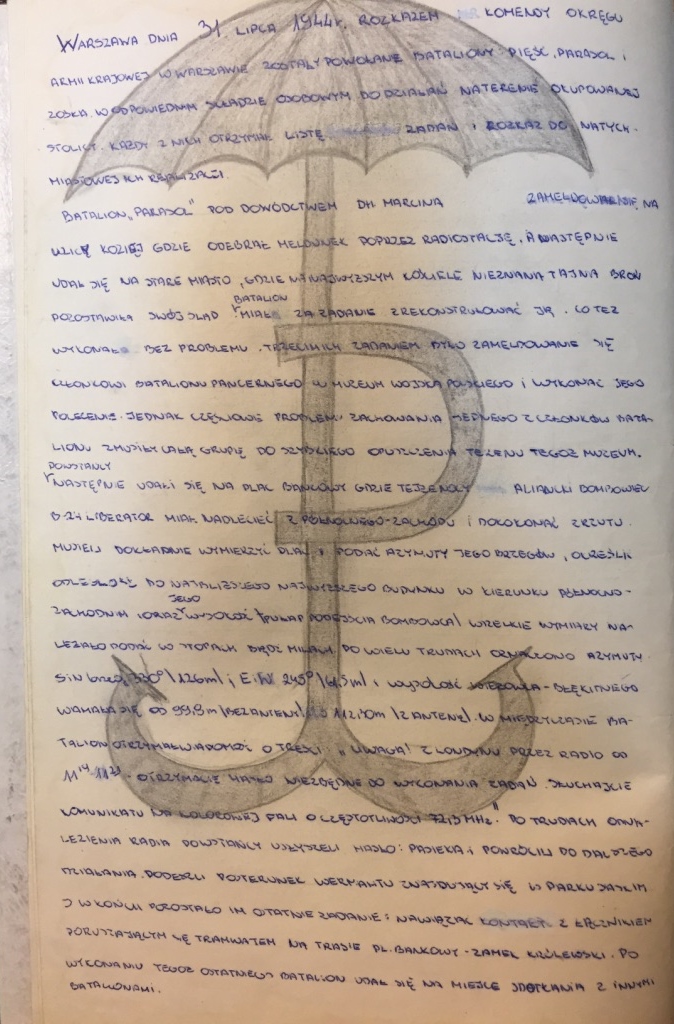 WARSZAWA DNIA 31. LIPCA 1944r. ROZKAZEM KOMENDY OKRĘGU
ARMII KRAJOWEJ W WARSZAWIE ZOSTAŁY POWOŁANE BATALIONY: PIĘŚĆ, PARASOL I
ZOŚKA. W ODPOWIEDNIM SKŁADZIE OSOBOWYM DO DZIAŁAŃ NA TERENIE OKUPOWANEJ
STOLICY. KAŻDY Z NICH OTRZYMAŁ LISTĘ ZADAŃ I ROZKAZ DO NATYCH-
MIASTOWEJ ICH REALIZACJI.
BATALION „PARASOL" POD DOWÓDCTWEM DH. MARCINA ZAMELDOWAŁ SIĘ NA
ULICĘ KOZIEJ GDZIE ODEBRAŁ MELDUNEK POPRZEZ RADIOSTACJĘ, A NASTĘPNIE
UDAŁ SIĘ NA STARE MIASTO, GDZIE NA NAJWYŻSZYM KOŚCIELE NIEZNANA TAJNA BROŃ
POZOSTAWIŁA SWÓJ ŚLAD. BATALION MIAŁ ZA ZADANIE ZREKONSTRUOWAĆ JĄ. CO TEŻ
WYKONAŁ BEZ PROBLEMU. TRZECIM ICH ZADANIEM BYŁO ZAMELDOWANIE SIĘ
CZŁONKOWI BATALIONU PANCERNEGO W MUZEUM WOJSKA POLSKIEGO I WYKONAĆ JEGO
POLECENIE. JEDNAK CZĘŚCIOWE PROBLEMY ZACHOWANIA JEDNEGO Z CZŁONKÓW BATA-
LIONU ZMUSIŁY CAŁĄ GRUPĘ DO SZYBKIEGO OPUSZCZENIA TERENU TEGOŻ MUZEUM.
POWSTAŃCY
NASTĘPNIE UDALI SIĘ NA PLAC BANKOWY GDZIE TEJŻE NOCY ALIANCKI BOMBOWIEC
B-24 LIBERATOR MIAŁ NADLECIEĆ Z PÓŁNOCNEGO-ZACHODU I DOKONAĆ ZRZUTU.
MUSIELI DOKŁADNIE WYMIERZYĆ PLAC I PODAĆ AZYMUTY JEGO BRZEGÓW, OKREŚLIĆ
ODLEGŁOŚĆ DO NAJBLIŻSZEGO NAJWYŻSZEGO BUDYNKU W KIERUNKU PÓŁNOCNO-
ZACHODNIM I ORAZ JEGO WYSOKOŚĆ /PUŁAP PODEJŚCIA BOMBOWCA/ WSZELKIE WYMIARY NA-
LEŻAŁO PODAĆ W STOPACH BĄDŹ MILACH. PO WIELU TRUDACH OZNACZONO AZYMUTY
S i N 330° /126m/ i E i W 245° /61,5m/ i WYSOKOŚĆ WIEŻOWCA-BŁĘKITNEGO
WAHAŁA SIĘ OD 99,9m /BEZ ANTENY/ DO 112,40m /Z ANTENĄ/. W MIĘDZYCZASIE BA-
TALION OTRZYMAŁ WIADOMOŚĆ O TREŚCI: „UWAGA! Z LONDYNU PRZEZ RADIO OD
11¹⁴ - 11²¹. OTRZYMACIE HASŁO NIEZBĘDNE DO WYKONANIA ZADAŃ. SŁUCHAJCIE
KOMUNIKATU NA KOLOROWEJ FALI O CZĘSTOTLIWOŚCI 72,3 MHz." PO TRUDACH ODNA-
LEZIENIA RADIA POWSTAŃCY USŁYSZELI HASŁO: PASIEKA I POWRÓCILI DO DALSZEGO
DZIAŁANIA. PODESZLI POSTERUNEK WERMAHTU ZNAJDUJĄCY SIĘ W PARKU SASKIM
I W KOŃCU POZOSTAŁO IM OSTATNIE ZADANIE: NAWIĄZAĆ KONTAKT Z ŁĄCZNIKIEM
PORUSZAJĄCYM SIĘ TRAMWAJEM NA TRASIE PL. BANKOWY - ZAMEK KRÓLEWSKI. PO
WYKONANIU TEGOŻ OSTATNIEGO BATALION UDAŁ SIĘ NA MIEJSCE SPOTKANIA Z INNYMI
BATALIONAMI.